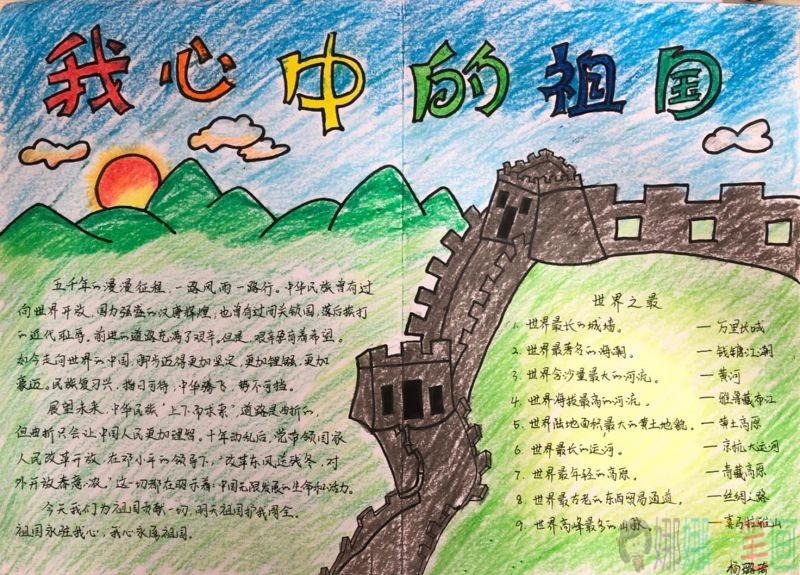 我心中的祖国
五千年的漫漫征程,一路风雨一路行。中华民族曾有过
向世界开放,国力强盛的汉唐辉煌,也曾有过闭关锁国,落后挨打
的近代耻辱。前进的道路充满了艰辛。但是,艰辛孕育着希望。
如今走向世界的中国,脚步迈得更加坚定,更加铿锵,更加
豪迈。民族复兴,指日可待,中华腾飞,势不可挡。
展望未来,中华民族"上下而求索",道路是曲折的,
但曲折只会让中国人民更加理智。十年动乱后,党带领国家
人民改革开放,在邓小平的领导下,"改革东风送残冬,对
外开放春满浓。"这一切都在昭示着:中国无限发展的生命和活力。
今天我们为祖国贡献一切,明天祖国护我周全。
祖国永驻我心,我心永属祖国。
世界之最
1. 世界最长的城墙。 — 万里长城
2. 世界最著名的海潮。 — 钱塘江潮
3. 世界含沙量最大的河流。 — 黄河
4. 世界海拔最高的河流。 — 雅鲁藏布江
5. 世界陆地面积最大的黄土地貌。 — 黄土高原
6. 世界最长的运河。 — 京杭大运河
7. 世界最年轻的高原。 — 青藏高原
8. 世界最古老的东西贸易通道。 — 丝绸之路
9. 世界高峰最多的山脉。 — 喜马拉雅山
娜娜 画